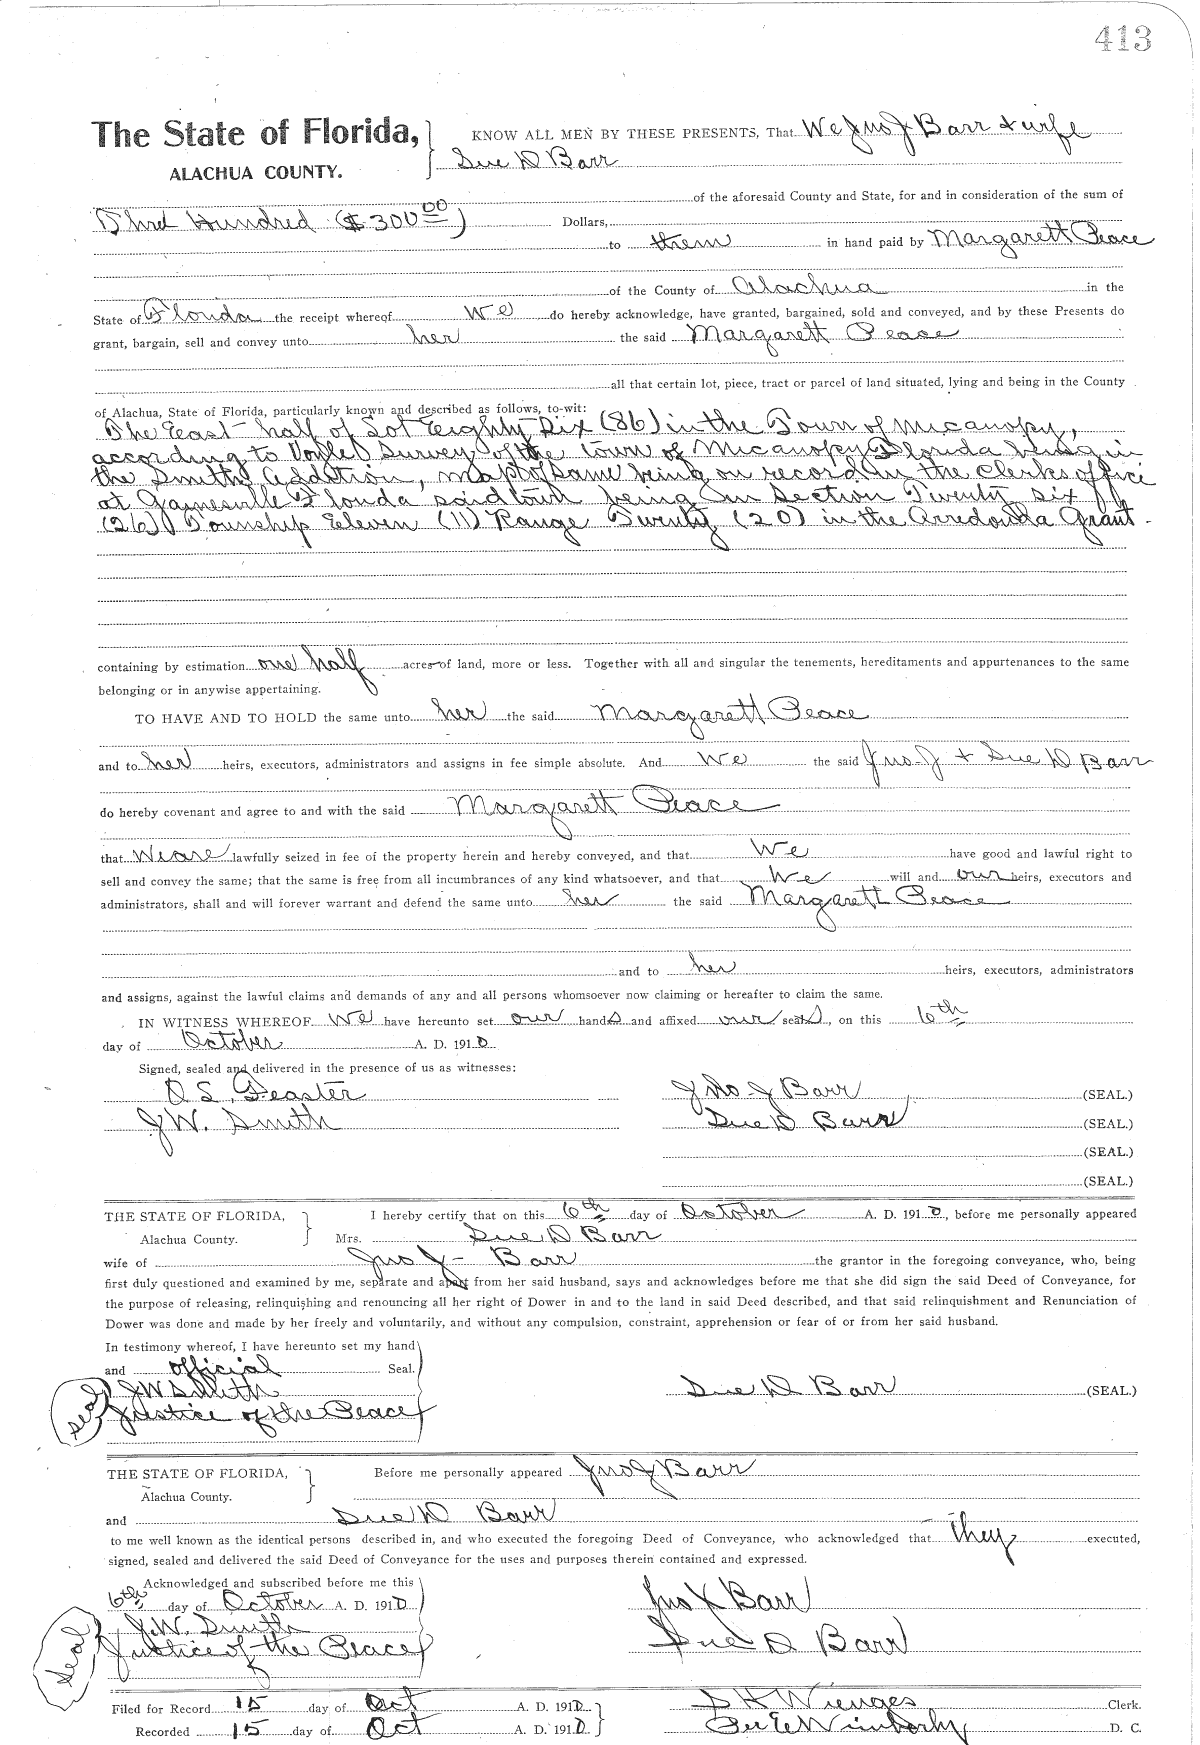 413
The State of Florida,
ALACHUA COUNTY.
KNOW ALL MEN BY THESE PRESENTS, That We Jno J Barr & wife
Sue D Barr
of the aforesaid County and State, for and in consideration of the sum of
Three Hundred ($300 00) Dollars,
to them in hand paid by Margarett Peace
of the County of Alachua in the
State of Florida the receipt whereof We do hereby acknowledge, have granted, bargained, sold and conveyed, and by these Presents do
grant, bargain, sell and convey unto her the said Margarett Peace
all that certain lot, piece, tract or parcel of land situated, lying and being in the County
of Alachua, State of Florida, particularly known and described as follows, to-wit:
The East half of Lot Eighty Six (86) in the Town of Micanopy,
according to Voyles Survey of the town of Micanopy Florida being in
the Smiths Addition, map of same being on record in the Clerks office
at Gainesville Florida said town being in Section Twenty six
(26) Township Eleven (11) Range Twenty (20) in the Arredonda Grant.
containing by estimation one half acres of land, more or less. Together with all and singular the tenements, hereditaments and appurtenances to the same
belonging or in anywise appertaining.
TO HAVE AND TO HOLD the same unto her the said Margarett Peace
and to her heirs, executors, administrators and assigns in fee simple absolute. And We the said Jno. J & Sue D Barr
do hereby covenant and agree to and with the said Margarett Peace
that We are lawfully seized in fee of the property herein and hereby conveyed, and that We have good and lawful right to
sell and convey the same; that the same is free from all incumbrances of any kind whatsoever, and that We will and our heirs, executors and
administrators, shall and will forever warrant and defend the same unto her the said Margarett Peace
and to her heirs, executors, administrators
and assigns, against the lawful claims and demands of any and all persons whomsoever now claiming or hereafter to claim the same.
IN WITNESS WHEREOF We have hereunto set our hands and affixed our seals, on this 6th
day of October A. D. 1910
Signed, sealed and delivered in the presence of us as witnesses:
O S. Feaster Jno. J Barr (SEAL.)
J W. Smith Sue D Barr (SEAL.)
(SEAL.)
(SEAL.)
THE STATE OF FLORIDA,
Alachua County.
I hereby certify that on this 6th day of October A. D. 1910, before me personally appeared
Mrs. Sue D Barr
wife of Jno J Barr the grantor in the foregoing conveyance, who, being
first duly questioned and examined by me, separate and apart from her said husband, says and acknowledges before me that she did sign the said Deed of Conveyance, for
the purpose of releasing, relinquishing and renouncing all her right of Dower in and to the land in said Deed described, and that said relinquishment and Renunciation of
Dower was done and made by her freely and voluntarily, and without any compulsion, constraint, apprehension or fear of or from her said husband.
In testimony whereof, I have hereunto set my hand
and official Seal.
Seal J W Smith Sue D Barr (SEAL.)
Justice of the Peace
THE STATE OF FLORIDA,
Alachua County.
Before me personally appeared Jno J Barr
and Sue D Barr
to me well known as the identical persons described in, and who executed the foregoing Deed of Conveyance, who acknowledged that They executed,
signed, sealed and delivered the said Deed of Conveyance for the uses and purposes therein contained and expressed.
Acknowledged and subscribed before me this
6th day of October A. D. 1910 Jno J Barr
Seal J. W. Smith Sue D Barr
Justice of the Peace
Filed for Record 15 day of Oct A. D. 1910 Wienges Clerk.
Recorded 15 day of Oct A. D. 1910 Per E Wimberly D. C.